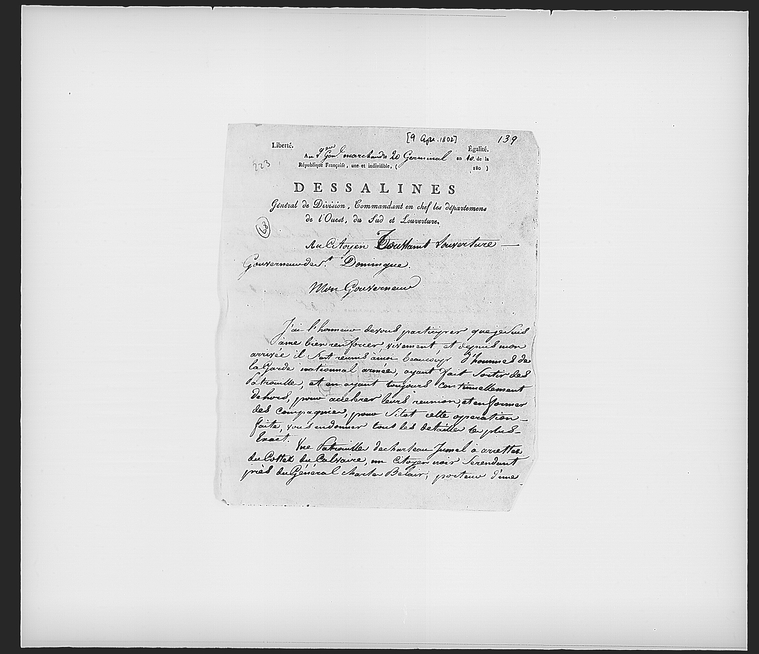 [9 Apr. 1802]
139
Liberté.
Égalité.
Au Qer Gnal marchands 20 Germinal an 10 de la
République Française, une et indivisible, (
180 )
223
DESSALINES
Général de Division, Commandant en chef les départemens
de l'Ouest, du Sud et Louverture.
Au Citoyen Toussaint Louverture
Gouverneur de St. Domingue.
Mon Gouverneur
J'ai l'honneur de vous participer que je suis
ame bien renforcer vivement et depuis mon
arrivée il s'est reunis ainsi beaucoup d'hommes de
la Garde national armée, ayant fait Sortir des
Patrouille, et en ayant toujours Continuellement
dehors, pour acelerer leurs reunion, et en former
des compagnies, pour Sitot cette operation
faite, vous en donner tout les detaille le plus
Exact. Une Patrouille de charteau Jumel a arretter
du Cotté du Calvaire, un Citoyen noir Se rendant
près du Général charles Belair, porteur d'une